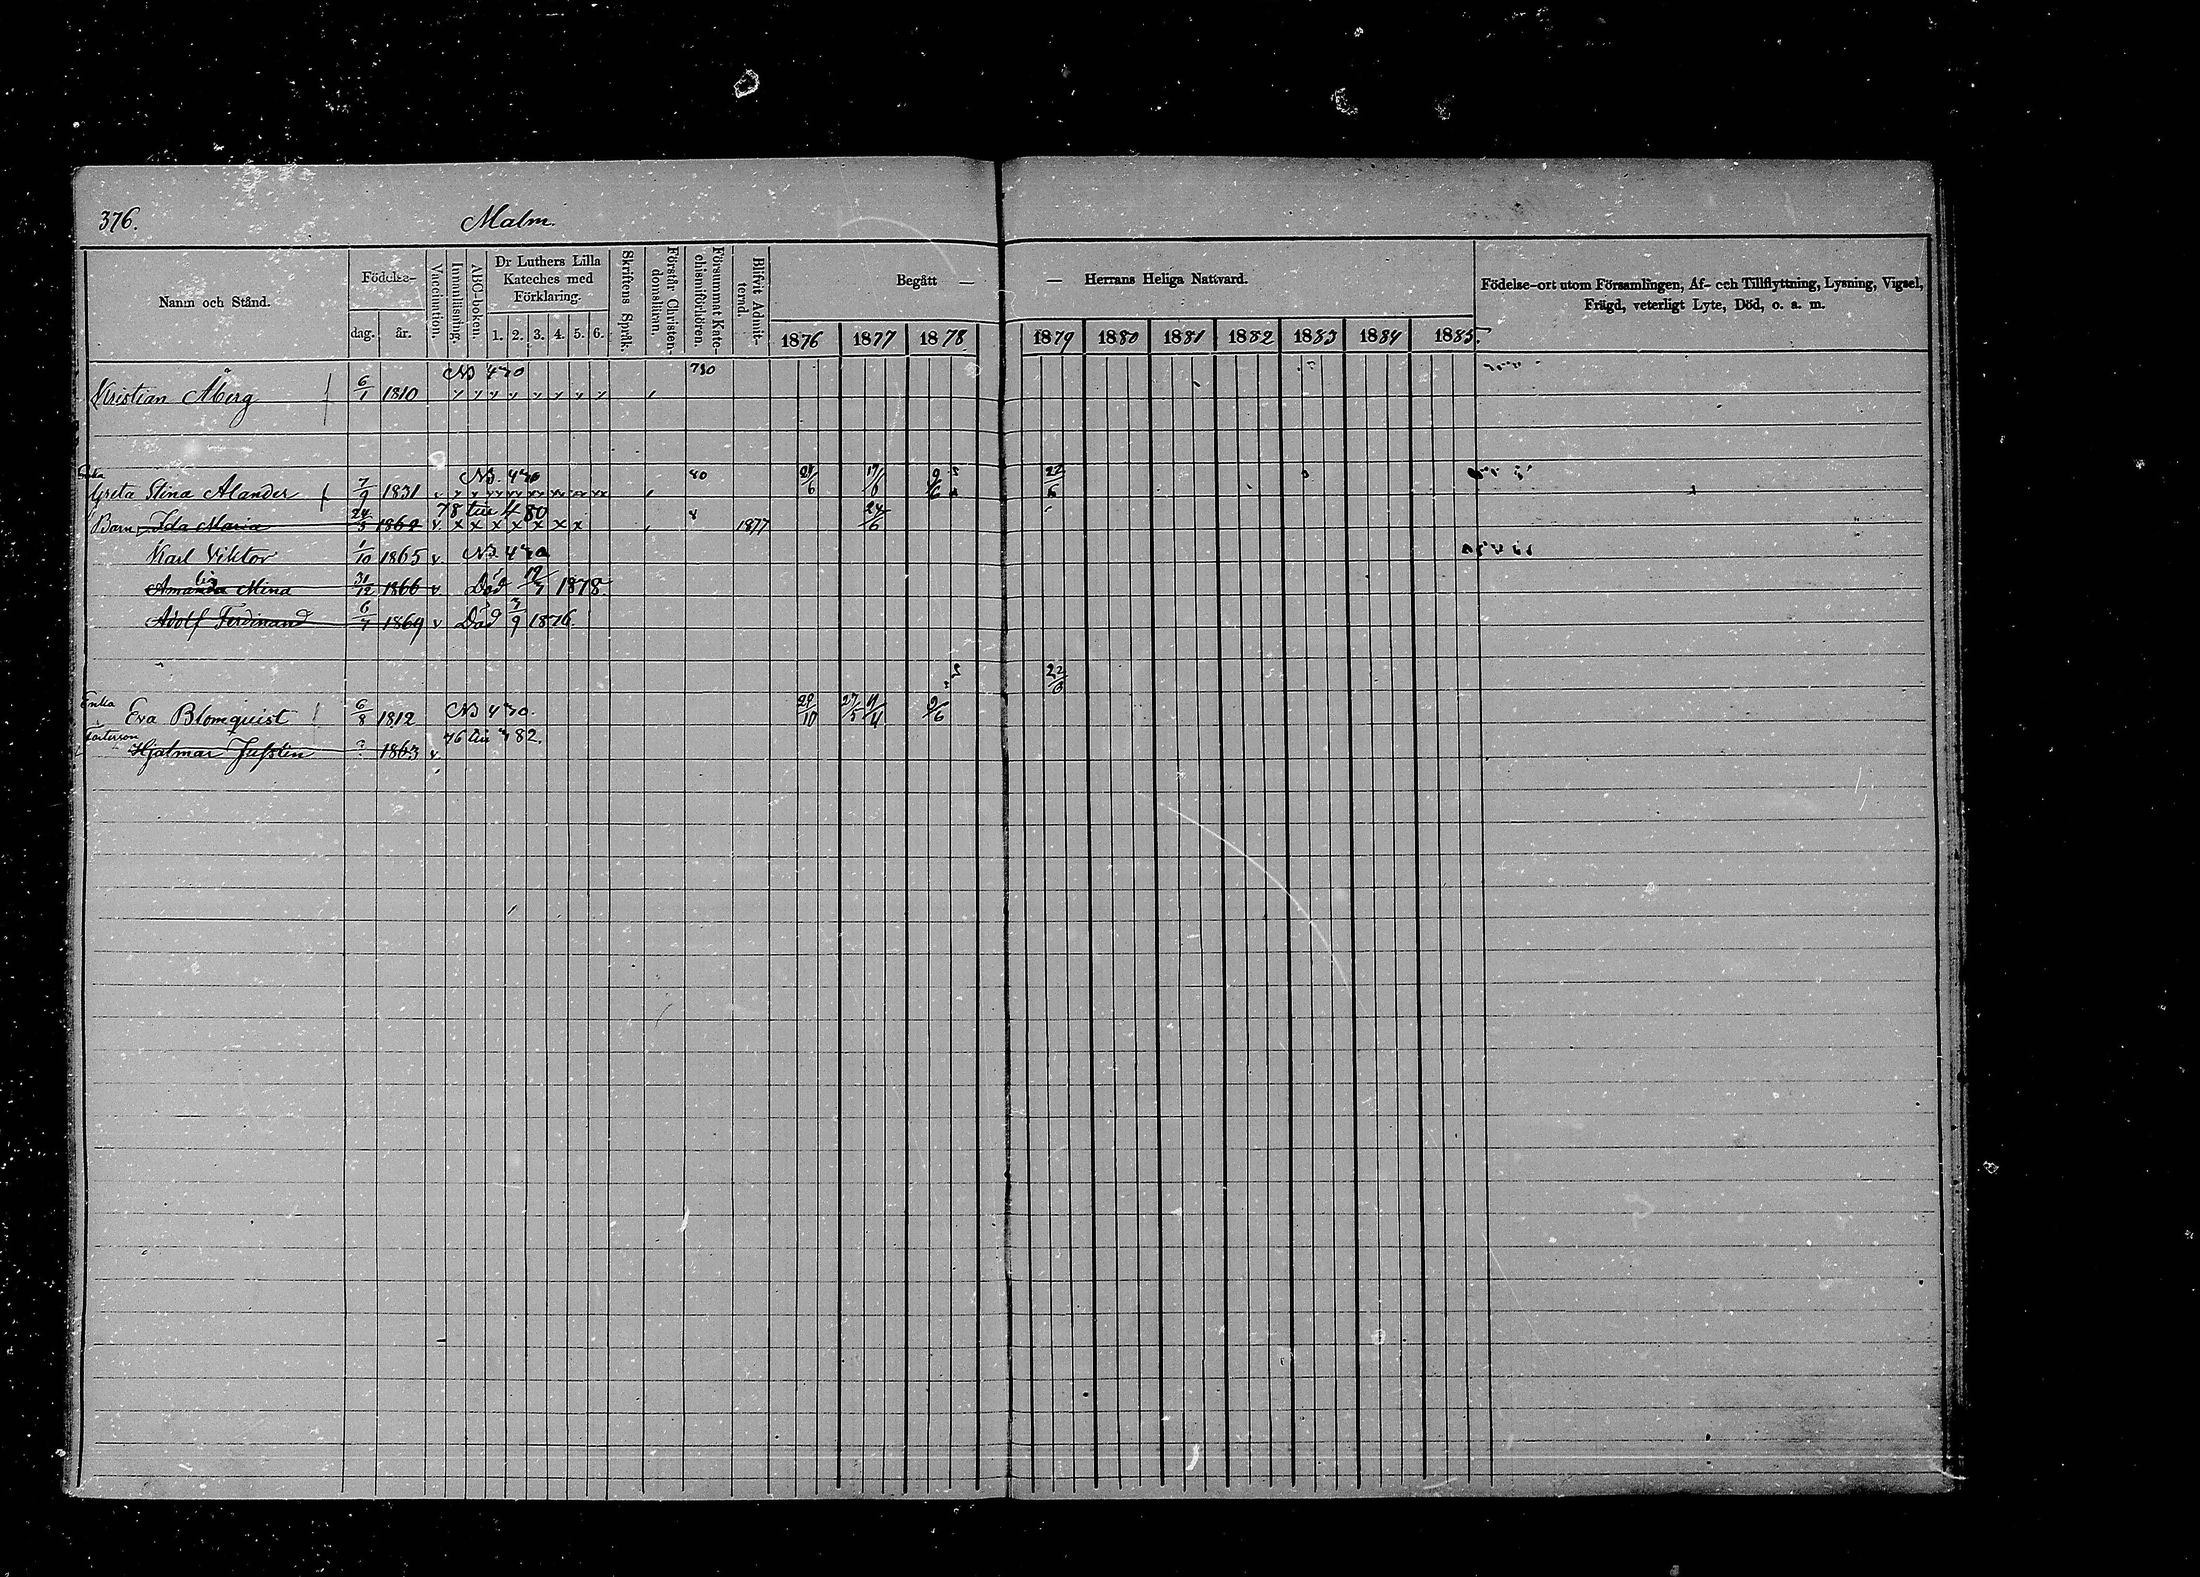 376.
Malm.
Namn och Stånd.
Födelse-
dag. år.
Vaccination.
Innanläsning.
ABC-boken.
Dr Luthers Lilla Kateches med Förklaring.
1. 2. 3. 4. 5. 6.
Skriftens Språk.
Förstår Christendomsläran.
Försummat Katechismiförhören.
Blifvit Admitterad.
Begått — — Herrans Heliga Nattvard.
1876 1877 1878 1879 1880 1881 1882 1883 1884 1885.
Födelse-ort utom Församlingen, Af- och Tillflyttning, Lysning, Vigsel,
Frägd, veterligt Lyte, Död, o. a. m.
Kristian Åberg 6/1 1810
Greta Stina Alander 7/9 1831 80 17/6 9/6 22/6
Barn Ida Maria 78 till 480 1877 24/6
Karl Viktor 1/10 1865 v
Amanda Mina 31/12 1866 v Död 1878
Adolf Ferdinand 6/7 1869 v Död 1876.
22/6
Enka Eva Blomquist 6/8 1812 29/10 27/5 9/6
Hjalmar Jufstén ? 1863 v